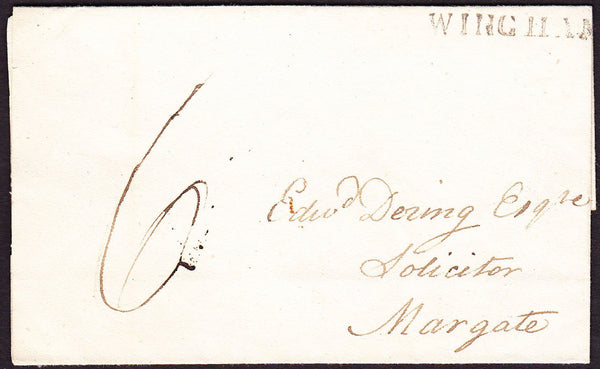 WINGHAM
6
Edwd Dering Esqre
Solicitor
Margate